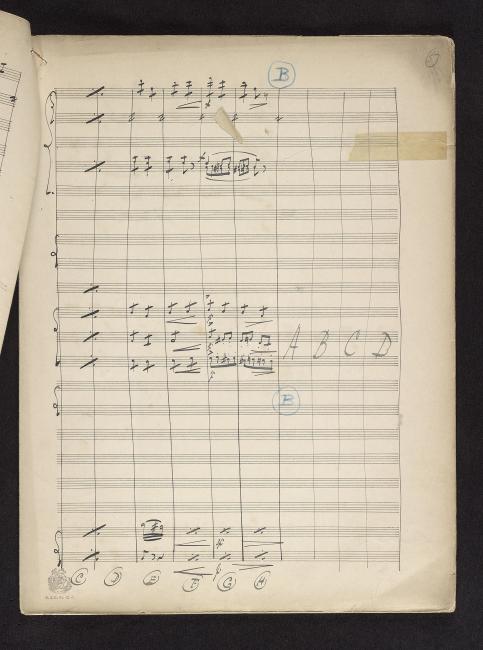 B
A B C D
B
C D E F G H